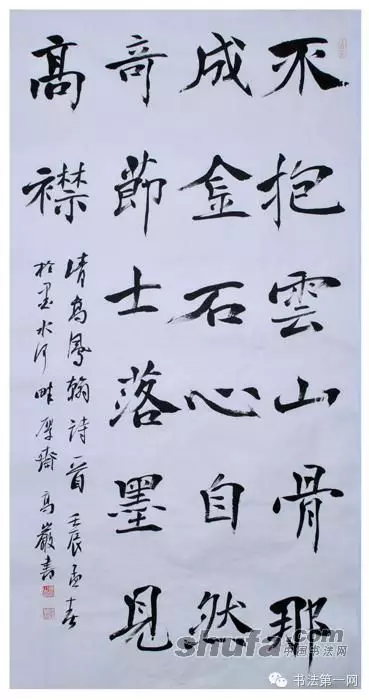 不抱雲山骨那
成金石心自然
奇節士落墨見
髙襟
清高鳳翰詩一首 壬辰孟春
於墨水河畔 齋 高嚴書
shufa.com
中国书法网
书法第一网